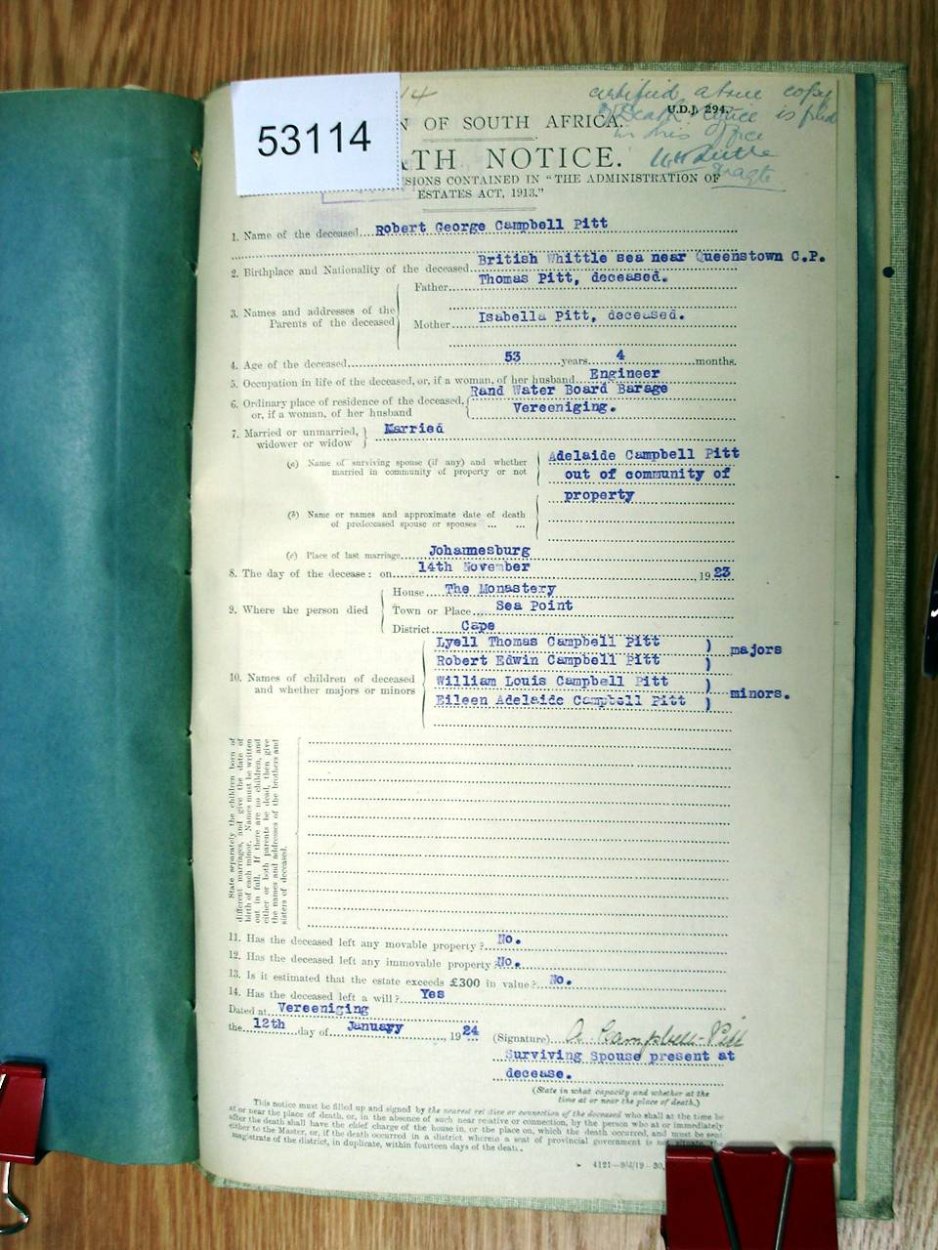 53114
14
certified a true copy
U.D.J. 294.
of Death Notice is filed
in this office
N OF SOUTH AFRICA.
ATH NOTICE.
SIONS CONTAINED IN "THE ADMINISTRATION OF
ESTATES ACT, 1913."
1. Name of the deceased Robert George Campbell Pitt
British Whittle sea near Queenstown C.P.
2. Birthplace and Nationality of the deceased
3. Names and addresses of the Parents of the deceased
Father Thomas Pitt, deceased.
Mother Isabella Pitt, deceased.
4. Age of the deceased 53 years 4 months.
5. Occupation in life of the deceased, or, if a woman, of her husband Engineer
6. Ordinary place of residence of the deceased, Rand Water Board Barage
or, if a woman, of her husband Vereeniging.
7. Married or unmarried, Married
widower or widow
(a) Name of surviving spouse (if any) and whether Adelaide Campbell Pitt
married in community of property or not out of community of
property
(b) Name or names and approximate date of death
of predeceased spouse or spouses ... ...
(c) Place of last marriage Johannesburg
8. The day of the decease: on 14th November 1923
9. Where the person died
House The Monastery
Town or Place Sea Point
District Cape
10. Names of children of deceased
and whether majors or minors
Lyell Thomas Campbell Pitt )
majors
Robert Edwin Campbell Pitt )
William Louis Campbell Pitt )
minors.
Eileen Adelaide Campbell Pitt )
State separately the children born of
different marriages, and give the date of
birth of each minor. Names must be written
out in full. If there are no children, and
either or both parents be dead, then give
the names and addresses of the brothers and
sisters of deceased.
11. Has the deceased left any movable property? No.
12. Has the deceased left any immovable property? No.
13. Is it estimated that the estate exceeds £300 in value? No.
14. Has the deceased left a will? Yes
Dated at Vereeniging
the 12th day of January 1924
(Signature) A Campbell-Pitt
Surviving Spouse present at
decease.
(State in what capacity and whether at the
time at or near the place of death.)
This notice must be filled up and signed by the nearest relative or connection of the deceased who shall at the time be
at or near the place of death, or, in the absence of such near relative or connection, by the person who at or immediately
after the death shall have the chief charge of the house in, or the place on, which the death occurred, and must be sent
either to the Master, or, if the death occurred in a district wherein a seat of provincial government is not situate, the
magistrate of the district, in duplicate, within fourteen days of the death.